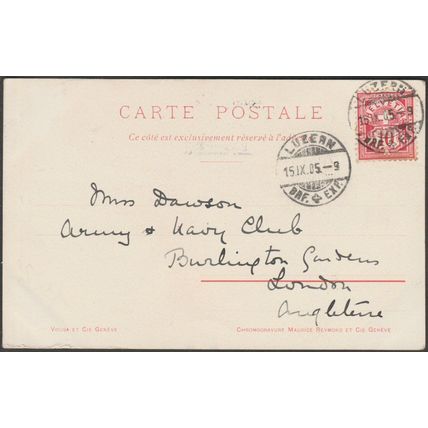 CARTE POSTALE
Ce côté est exclusivement réservé à l'adresse
LUZERN
15.IX.05.-9
BRF. EXP.
LUZERN
15.IX.05.-9
BRF. EXP.
HELVETIA
10
Miss Dawson
Army & Navy Club
Burlington Gardens
London
Angleterre
VOUGA ET CIE GENÈVE
CHROMOGRAVURE MAURICE REYMOND ET CIE GENÈVE